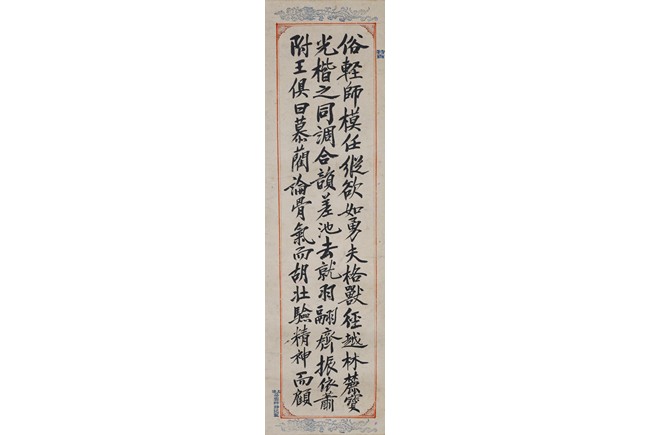 俗軽師模任縱欲如勇夫格獸徑越林麓寶
光楷之同調合韻差池去就羽翮齊振依蕭
附王俱曰慕藺論骨氣而胡壯驗精神而顧